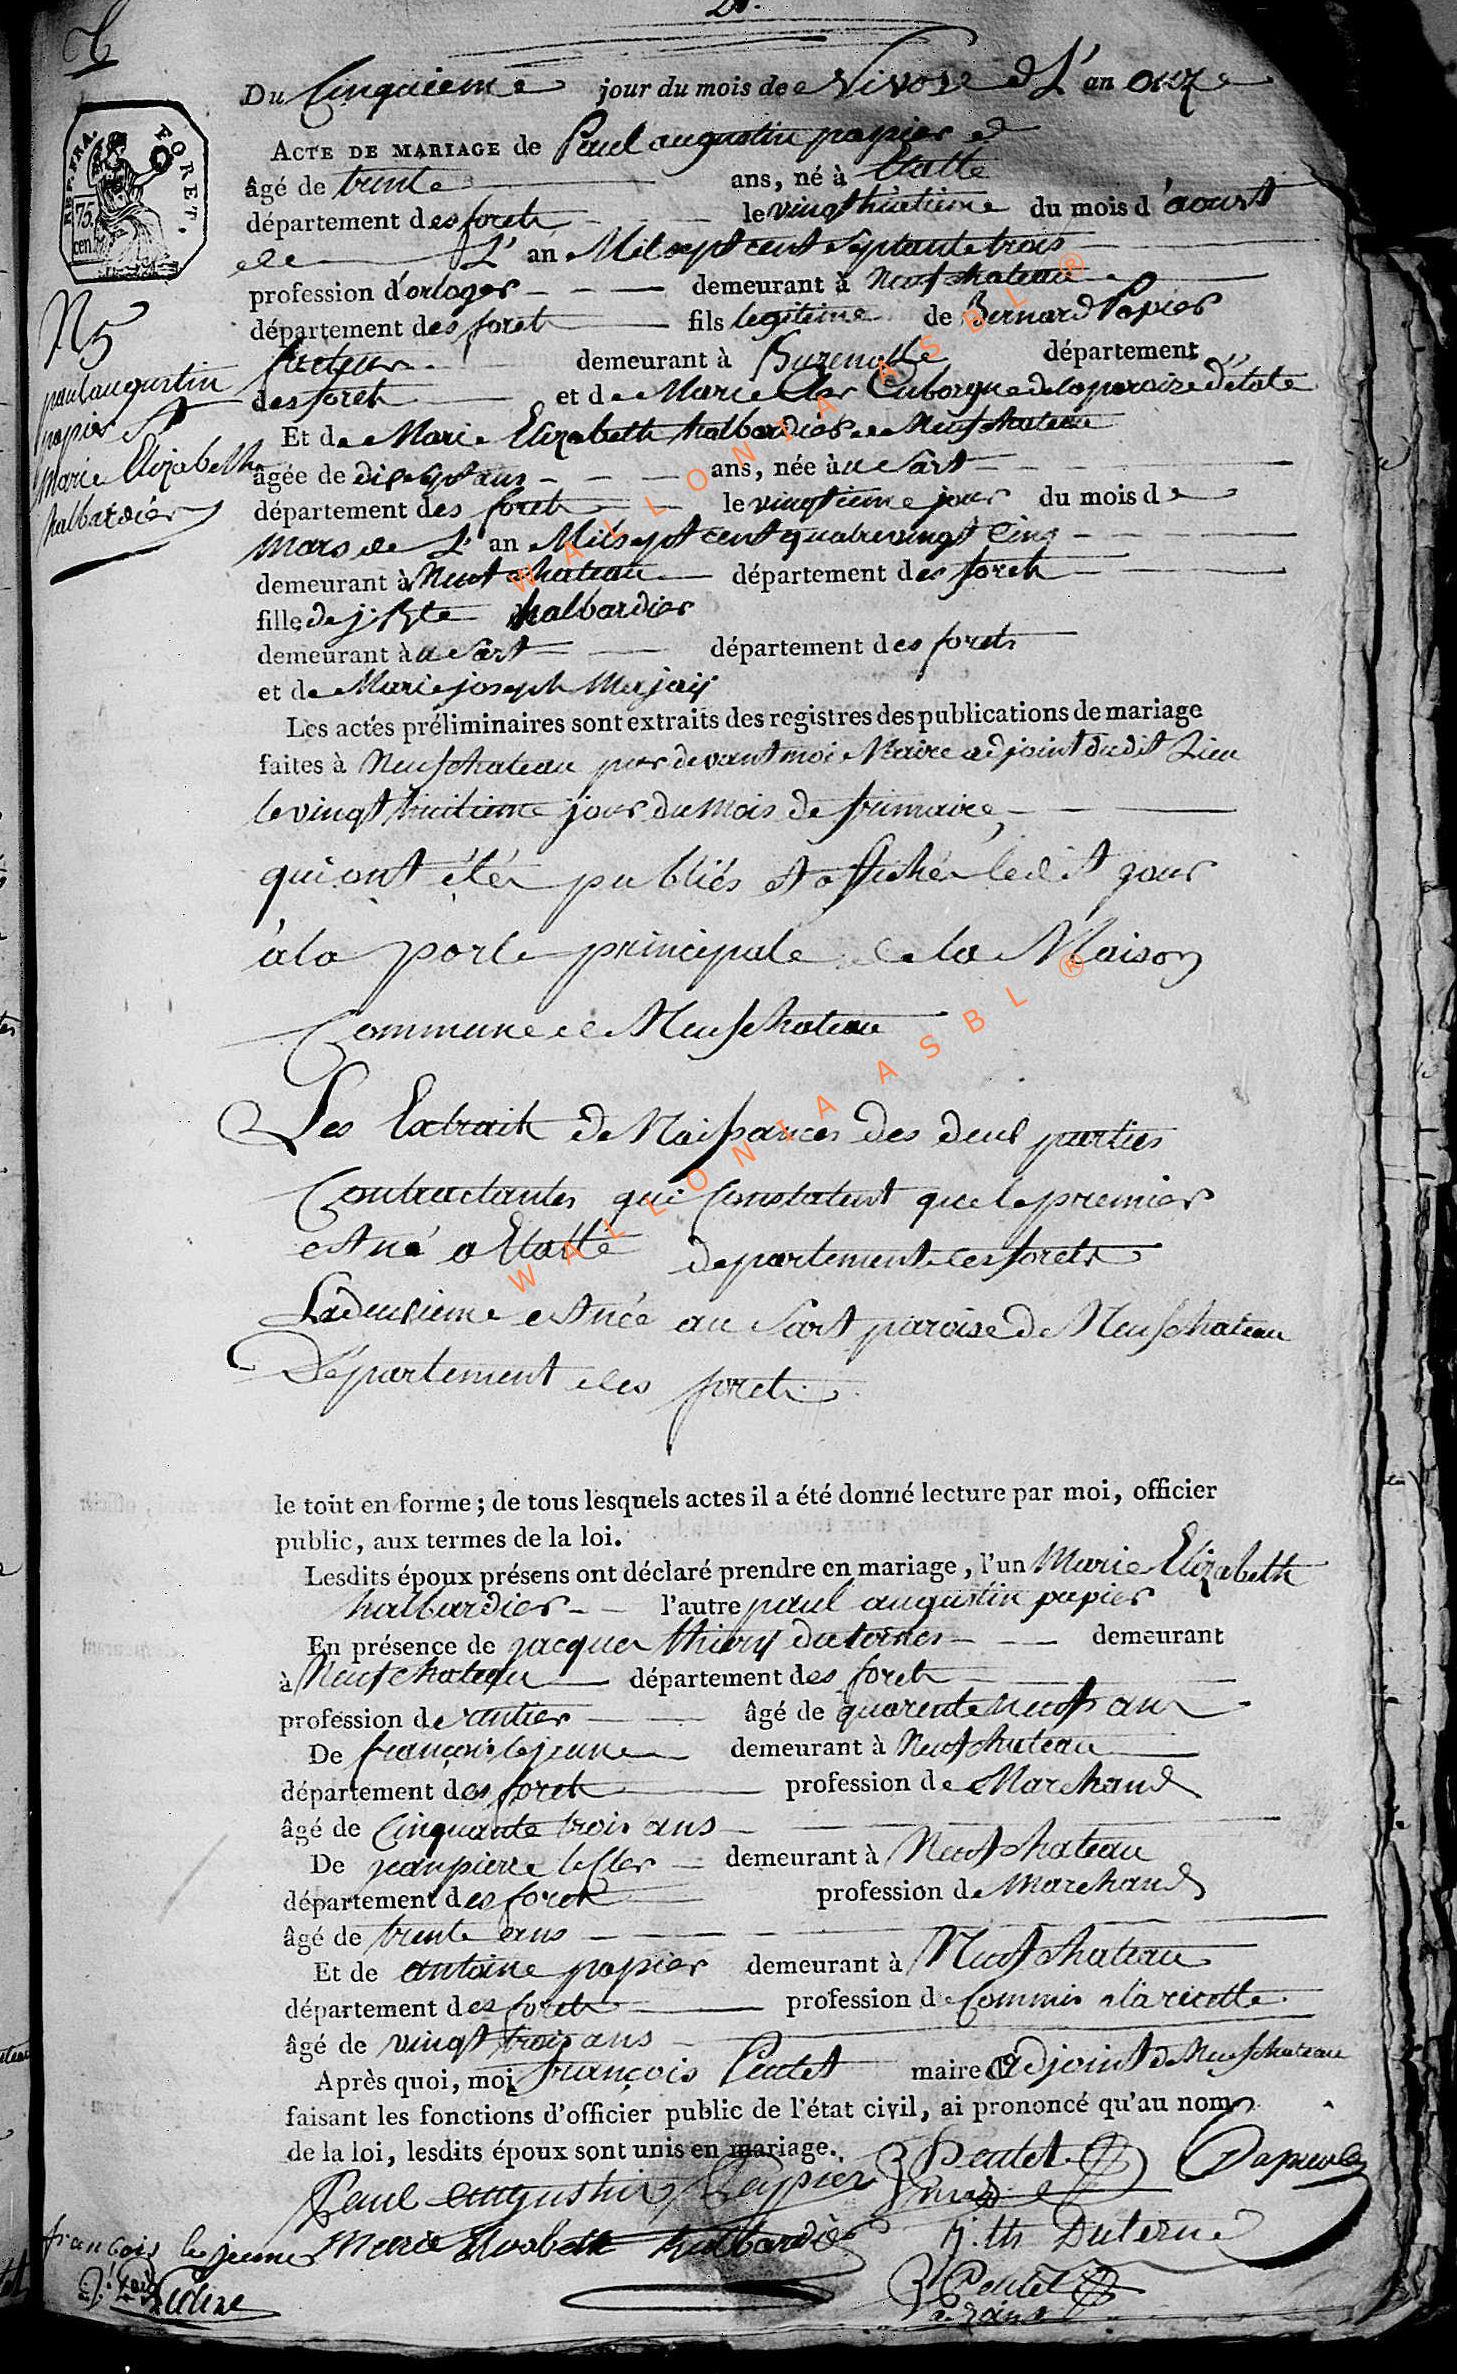 Du Cinquieme jour du mois de Nivose de L'an onze
ACTE DE MARIAGE de Paul augustin papier
âgé de trente ans, né à Etalle
département des forets le vingt huitieme du mois d'aoust
de L'an Mil sept cent septante trois
profession d'orloger demeurant à Neufchateau
département des forets fils legitime de Bernard Papier
facteur demeurant à Buzenolle département
des forets et de Marie Cuborgne de la paroise d'étale
Et de Marie Elizabeth halbardier de Neufchateau
âgée de dix sept ans ans, née au Sart
département des forets le vingtieme jour du mois de
Mars de L'an Mil sept cent quatre vingt Cinq
demeurant à Neufchateau département des forets
fille de j: Bte halbardier
demeurant au Sart département des forets
et de Marie joseph Merjaiy
Les actes préliminaires sont extraits des registres des publications de mariage
faites à Neufchateau par devant moi Maire adjoint dudit Lieu
le vingt huitieme jour du Mois de frimaire,
qui ont été publiés et affichés ledit jour
à la porte principale de la Maison
Commune de Neufchateau
Les Extraits de Naissances des deux parties
Contractantes qui Constatent que le premier
est né a Etalle departement des forets
La deusieme est née au Sart paroise de Neufchateau
Département des forets.
le tout en forme ; de tous lesquels actes il a été donné lecture par moi, officier
public, aux termes de la loi.
Lesdits époux présens ont déclaré prendre en mariage, l'un Marie Elizabeth
halbardier l'autre paul augustin papier
En présence de jacques thiery duterne demeurant
à Neufchateau département des forets
profession de rantier âgé de quarente neuf ans
De françois le jeune demeurant à Neufchateau
département des forets profession de Marchand
âgé de Cinquante trois ans
De jean pierre demeurant à Neufchateau
département des forets profession de Marchand
âgé de trente ans
Et de antoine papier demeurant à Neufchateau
département des forets profession de Commis a la recette
âgé de vingt trois ans
Après quoi, moi françois Pentet maire adjoint de Neufchateau
faisant les fonctions d'officier public de l'état civil, ai prononcé qu'au nom
de la loi, lesdits époux sont unis en mariage.
Pentet
Paul augustin Papier
françois le jeune Marie Elisabeth halbardier j. th Duterne
Pentet
REP. FRA. FORET.
75.
cen.
N 5
paul augustin
papier et
Marie Elizabeth
halbardier
WALLONIA ASBL ®
WALLONIA ASBL ®